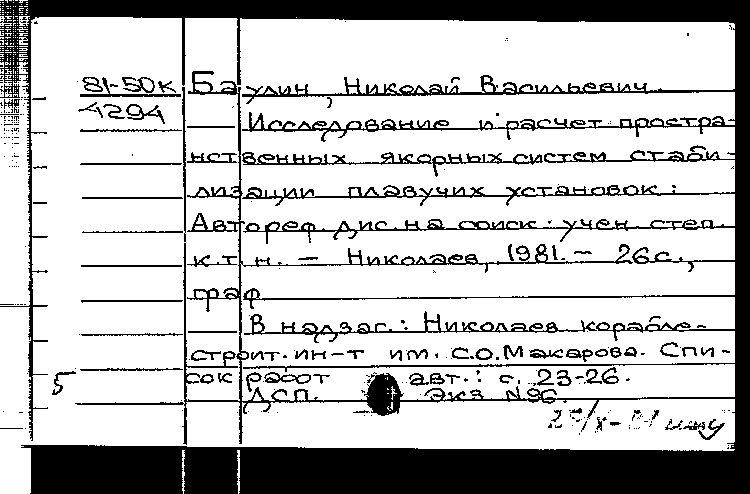 81-50к Баулин, Николай Васильевич.
4294
Исследование и расчет простра-
нственных якорных систем стаби-
лизации плавучих установок:
Автореф. дис. на соиск. учен. степ.
к.т.н. — Николаев, 1981. — 26с.,
граф.
В надзаг.: Николаев. корабле-
строит. ин-т им. С.О. Макарова. Спи-
сок работ авт.: с. 23-26.
5
ДСП. Экз. №96.